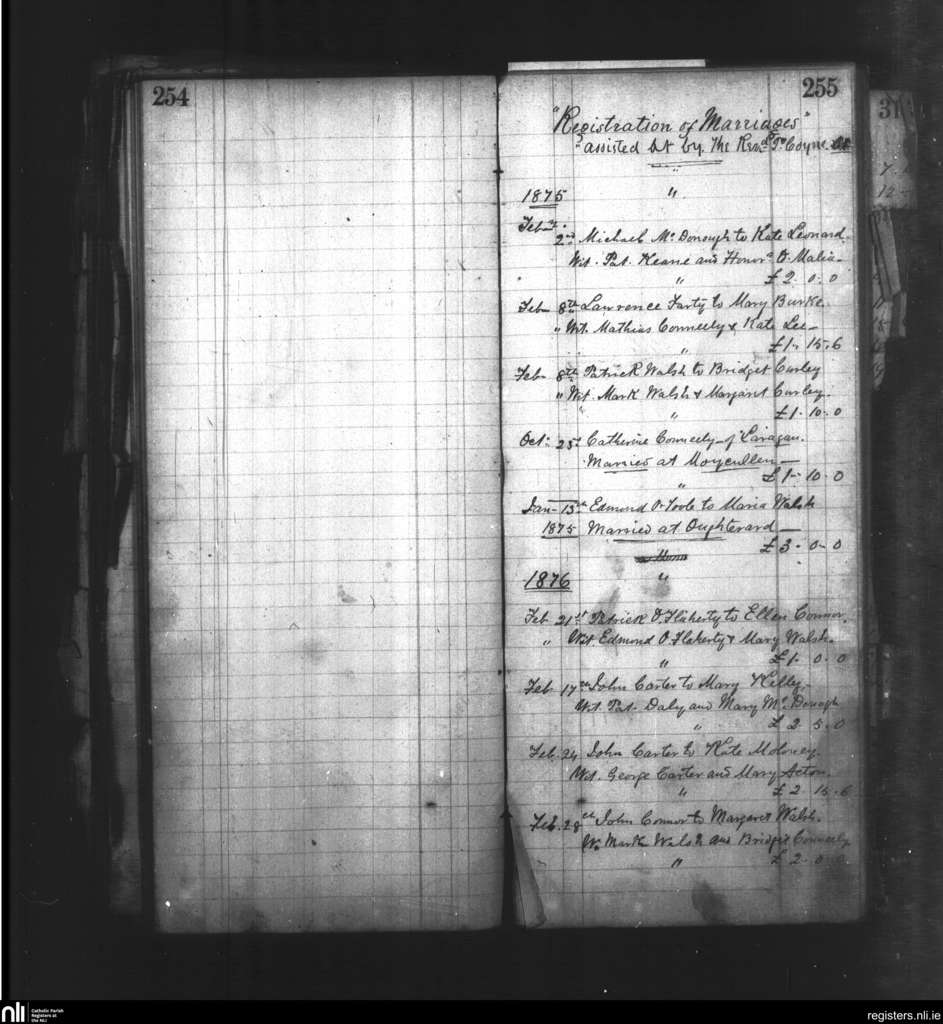 254
255
"Registration of Marriages"
"assisted at by The Revd. P. Coyne.
1875 "
Feby.
2nd Michael Mc Donough to Kate Leonard.
Wit. Pat. Keane and Honor O'Malia-
" £2. 0. 0
Feb 8th Lawrence Farty to Mary Burke.
" Wit. Mathias Conneely & Kate Lee-
" £1-. 15. 6
Feb 8th Patrick Walsh to Bridget Curley
" Wit. Mark Walsh & Margaret Curley.
" £1. 10. 0
Oct. 25th Catherine Conneely of Laragan.
Married at Moycullen-
" £1-. 10. 0
Jan- 13th Edmond O'Toole to Maria Walsh
1875 Married at Oughterard -
£3. 0-. 0
1876 "
Feb 21st Patrick O'Flaherty to Ellen Connor.
" Wit. Edmond O'Flaherty & Mary Walsh.
" £1. 0. 0
Feb 17th John Carter to Mary Kelly.
Wit. Pat. Daly and Mary Mc Donogh
" £2. 5. 0
Feb. 24 John Carter to Kate Moloney.
Wit. George Carter and Mary Acton.
" £2. 15. 6
Feb. 28th John Connor to Margaret Walsh.
Wit. Mark Walsh and Bridget Conneely.
" £2. 0. 0
31
7.
12
nli
Catholic Parish
Registers at
the NLI
registers.nli.ie